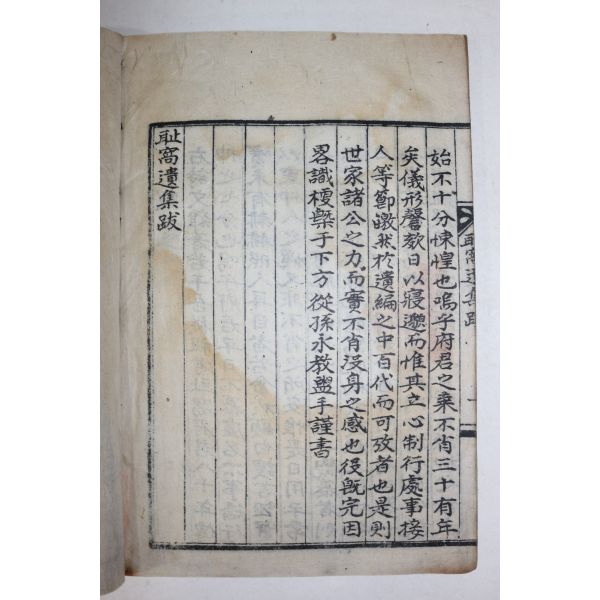 始不十分悚惶也嗚乎府君之棄不肖三十有年
矣儀形謦欬日以寖邈而惟其立心制行處事接
人等節皦然於遺編之中百代而可攷者也是則
世家諸公之力而實不肖沒身之感也役旣完因
畧識梗槩于下方從孫永敎盥手謹書
耻窩遺集跋
耻窩遺集跋